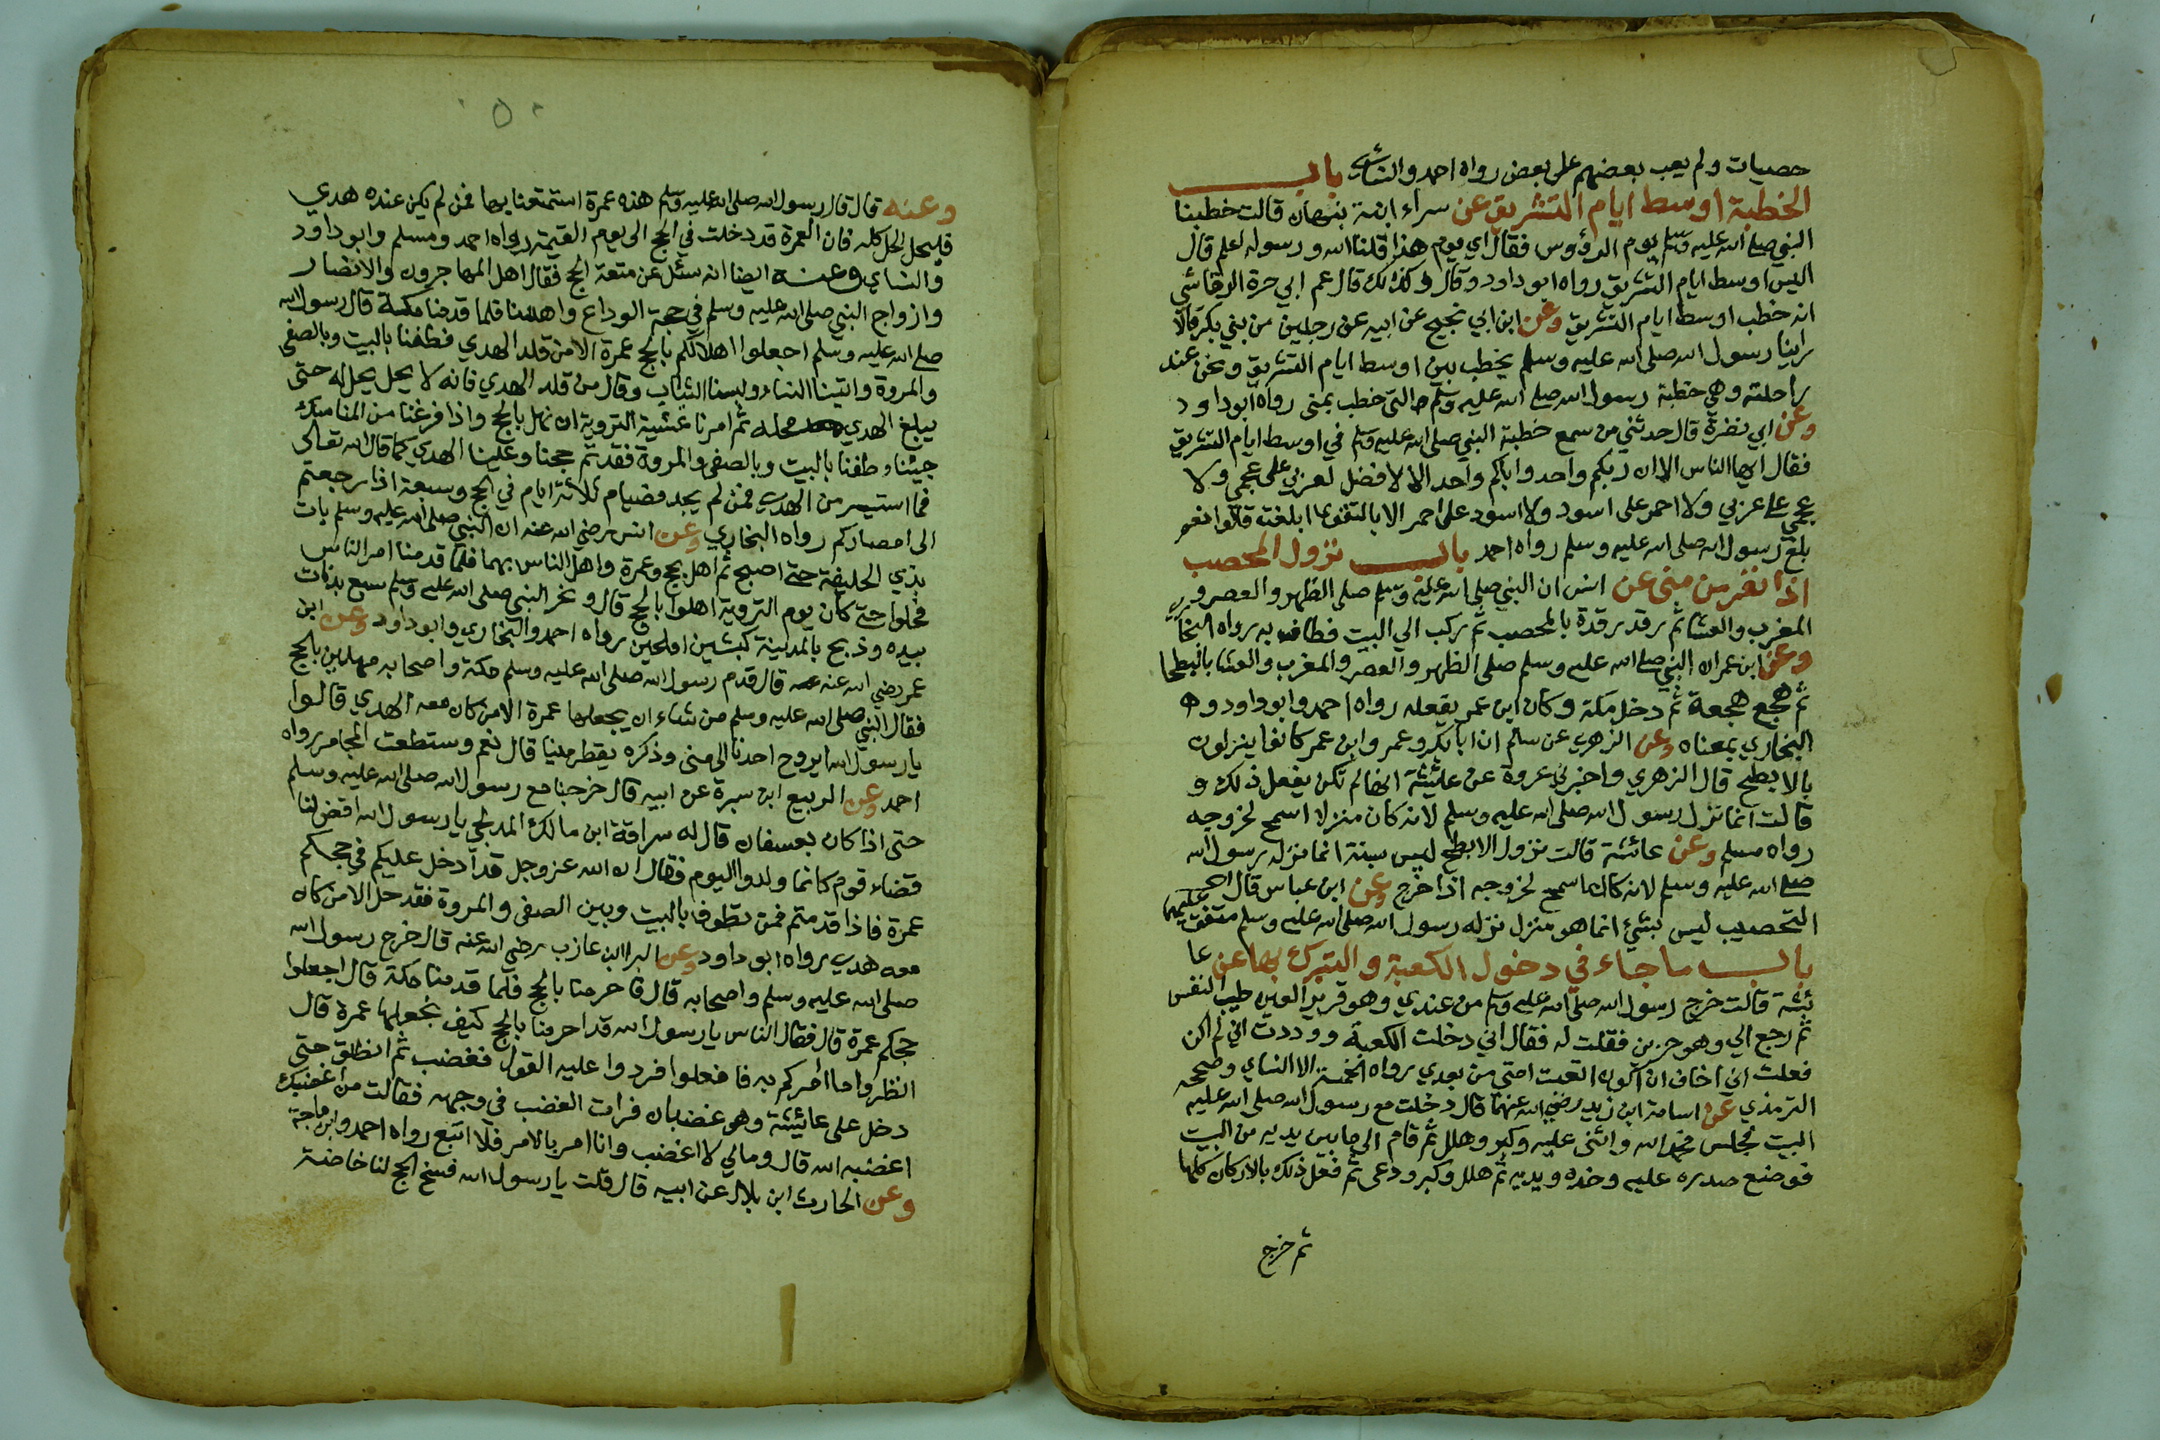 حصيات ولم يعب بعضهم على بعض رواه احمد والنسائي باب
الخطبة اوسط ايام التشريق عن سراء ابنة نبهان قالت خطبنا
النبي صلى الله عليه وسلم يوم الرؤوس فقال اي يوم هذا قلنا الله ورسوله اعلم قال
اليس اوسط ايام التشريق رواه ابو داود وقال وكذلك قال عم ابي حرة الرقاشي
انه خطب اوسط ايام التشريق وعن ابن ابي نجيح عن ابيه عن رجلين من بني بكر قالا
راينا رسول الله صلى الله عليه وسلم يخطب بين اوسط ايام التشريق ونحن عند
راحلته وهي خطبة رسول الله صلى الله عليه وسلم التى خطب بمنى رواه ابو داود
وعن ابي نضرة قال حدثني من سمع خطبة النبي صلى الله عليه وسلم في اوسط ايام التشريق
فقال ايها الناس الا ان ربكم واحد واباكم واحد الا لا فضل لعربي على عجمي ولا
عجمي على عربي ولا احمر على اسود ولا اسود على احمر الا بالتقوى ابلغت قالوا نعم
بلغ رسول الله صلى الله عليه وسلم رواه احمد باب نزول المحصب
اذا نفر من منى عن انس ان النبي صلى الله عليه وسلم صلى الظهر والعصر و
المغرب والعشا ثم رقد رقدة بالمحصب ثم ركب الى البيت فطاف به رواه البخا
وعن ابن عمر ان النبي صلى الله عليه وسلم صلى الظهر والعصر والمغرب والعشا بالبطحا
ثم هجع هجعة ثم دخل مكة وكان ابن عمر يفعله رواه احمد وابو داود و
البخاري بمعناه وعن الزهري عن سالم ان ابا بكر وعمر وابن عمر كانوا ينزلون
بالابطح قال الزهري واخبرني عروة عن عايشة انها لم تكن يفعل ذلك و
قالت انما نزل رسول الله صلى الله عليه وسلم لانه كان منزلا اسمح لخروجه
رواه مسلم وعن عائشة قالت نزول الابطح ليس بسنة انما نزله رسول الله
صلى الله عليه وسلم لانه كان اسمح لخروجه اذا خرج وعن ابن عباس قال
التحصيب ليس بشيء انما هو منزل نزله رسول الله صلى الله عليه وسلم متفق عليهما
باب ما جاء في دخول الكعبة والتبرك بها عن عا
ئشة قالت خرج رسول الله صلى الله عليه وسلم من عندي وهو قرير العين طيب النفس
ثم رجع الي وهو حزين فقلت له فقال اني دخلت الكعبة ووددت اني لم اكن
فعلت اني اخاف ان اكون اتعبت امتي من بعدي رواه الخمسة الا النساي وصححه
الترمذي عن اسامة ابن زيد رضي الله عنهما قال دخلت مع رسول الله صلى الله عليه
البيت فجلس فحمد الله واثنى عليه وكبر وهلل ثم قام الى ما بين يديه من البيت
فوضع صدره عليه وخده ويديه ثم هلل وكبر ودعى ثم فعل ذلك بالاركان كلها
ثم خرج
وعنه قال قال رسول الله صلى الله عليه وسلم هذه عمرة استمتعنا بها فمن لم يكن عنده هدي
فليحل الحل كله فان العمرة قد دخلت في الحج الى يوم القيمة رواه احمد ومسلم وابو داود
والنساي وعنه ايضا انه سئل عن متعة الحج فقال اهل المهاجرون والانصار
وازواج النبي صلى الله عليه وسلم في حجة الوداع واهللنا فلما قدمنا مكة قال رسول الله
صلى الله عليه وسلم اجعلوا اهلالكم بالحج عمرة الا من قلد الهدي فطفنا بالبيت وبالصفى
والمروة واتينا النساء ولبسنا الثياب وقال من قلد الهدي فانه لا يحل يحل له حتى
يبلغ الهدي محله ثم امرنا عشية التروية ان نهل بالحج واذا فرغنا من المناسك
جيئنا وطفنا بالبيت وبالصفى والمروة فقد تم حجنا وعلينا الهدي كما قال الله تعالى
فما استيسر من الهدي فمن لم يجد فصيام ثلاثة ايام في الحج وسبعة اذا رجعتم
الى امصاركم رواه البخاري وعن انس رضي الله عنه ان النبي صلى الله عليه وسلم بات
بذي الحليفة حتى اصبح ثم اهل بحج وعمرة واهل الناس بهما فلما قدمنا امر الناس
فحلوا حتى كان يوم التروية اهلوا بالحج قال ونحر النبي صلى الله عليه وسلم سبع بدنات
بيده وذبح بالمدينة كبشين املحين رواه احمد والبخاري وابو داود وعن ابن
عمر رضي الله عنه قال قدم رسول الله صلى الله عليه وسلم مكة واصحابه مهلين بالحج
فقال النبي صلى الله عليه وسلم من شاء ان يجعلها عمرة الا من كان معه الهدي قالوا
يا رسول الله ايروح احدنا الى منى وذكره يقطر منيا قال نعم وسطعت المجامر رواه
احمد وعن الربيع ابن سبرة عن ابيه قال خرجنا مع رسول الله صلى الله عليه وسلم
حتى اذا كان بعسفان قال له سراقة ابن مالك المدلجي يا رسول الله اقض لنا
قضاء قوم كانما ولدوا اليوم فقال ان الله عز وجل قد ادخل عليكم في حجكم
عمرة فاذا قدمتم فمن تطوف بالبيت وبين الصفى والمروة فقد حل الا من كان
معه هدي رواه ابو داود وعن البراابن عازب رضي الله عنه قال خرج رسول الله
صلى الله عليه وسلم واصحابه قال فاحرمنا بالحج فلما قدمنا مكة قال اجعلوا
حجكم عمرة قال فقال الناس يا رسول الله قد احرمنا بالحج كيف نجعلها عمرة قال
انظروا ما امركم به فافعلوا فردوا عليه القول فغضب ثم انطلق حتى
دخل على عائيشة وهو غضبان فرات الغضب في وجهه فقالت من اغضبك
اغضبه الله قال ومالي لا اغضب وانا امر بالامر فلا اتبع رواه احمد وابن ماجة
وعن الحارث ابن بلال عن ابيه قال قلت يا رسول الله فسخ الحج لنا خاصة